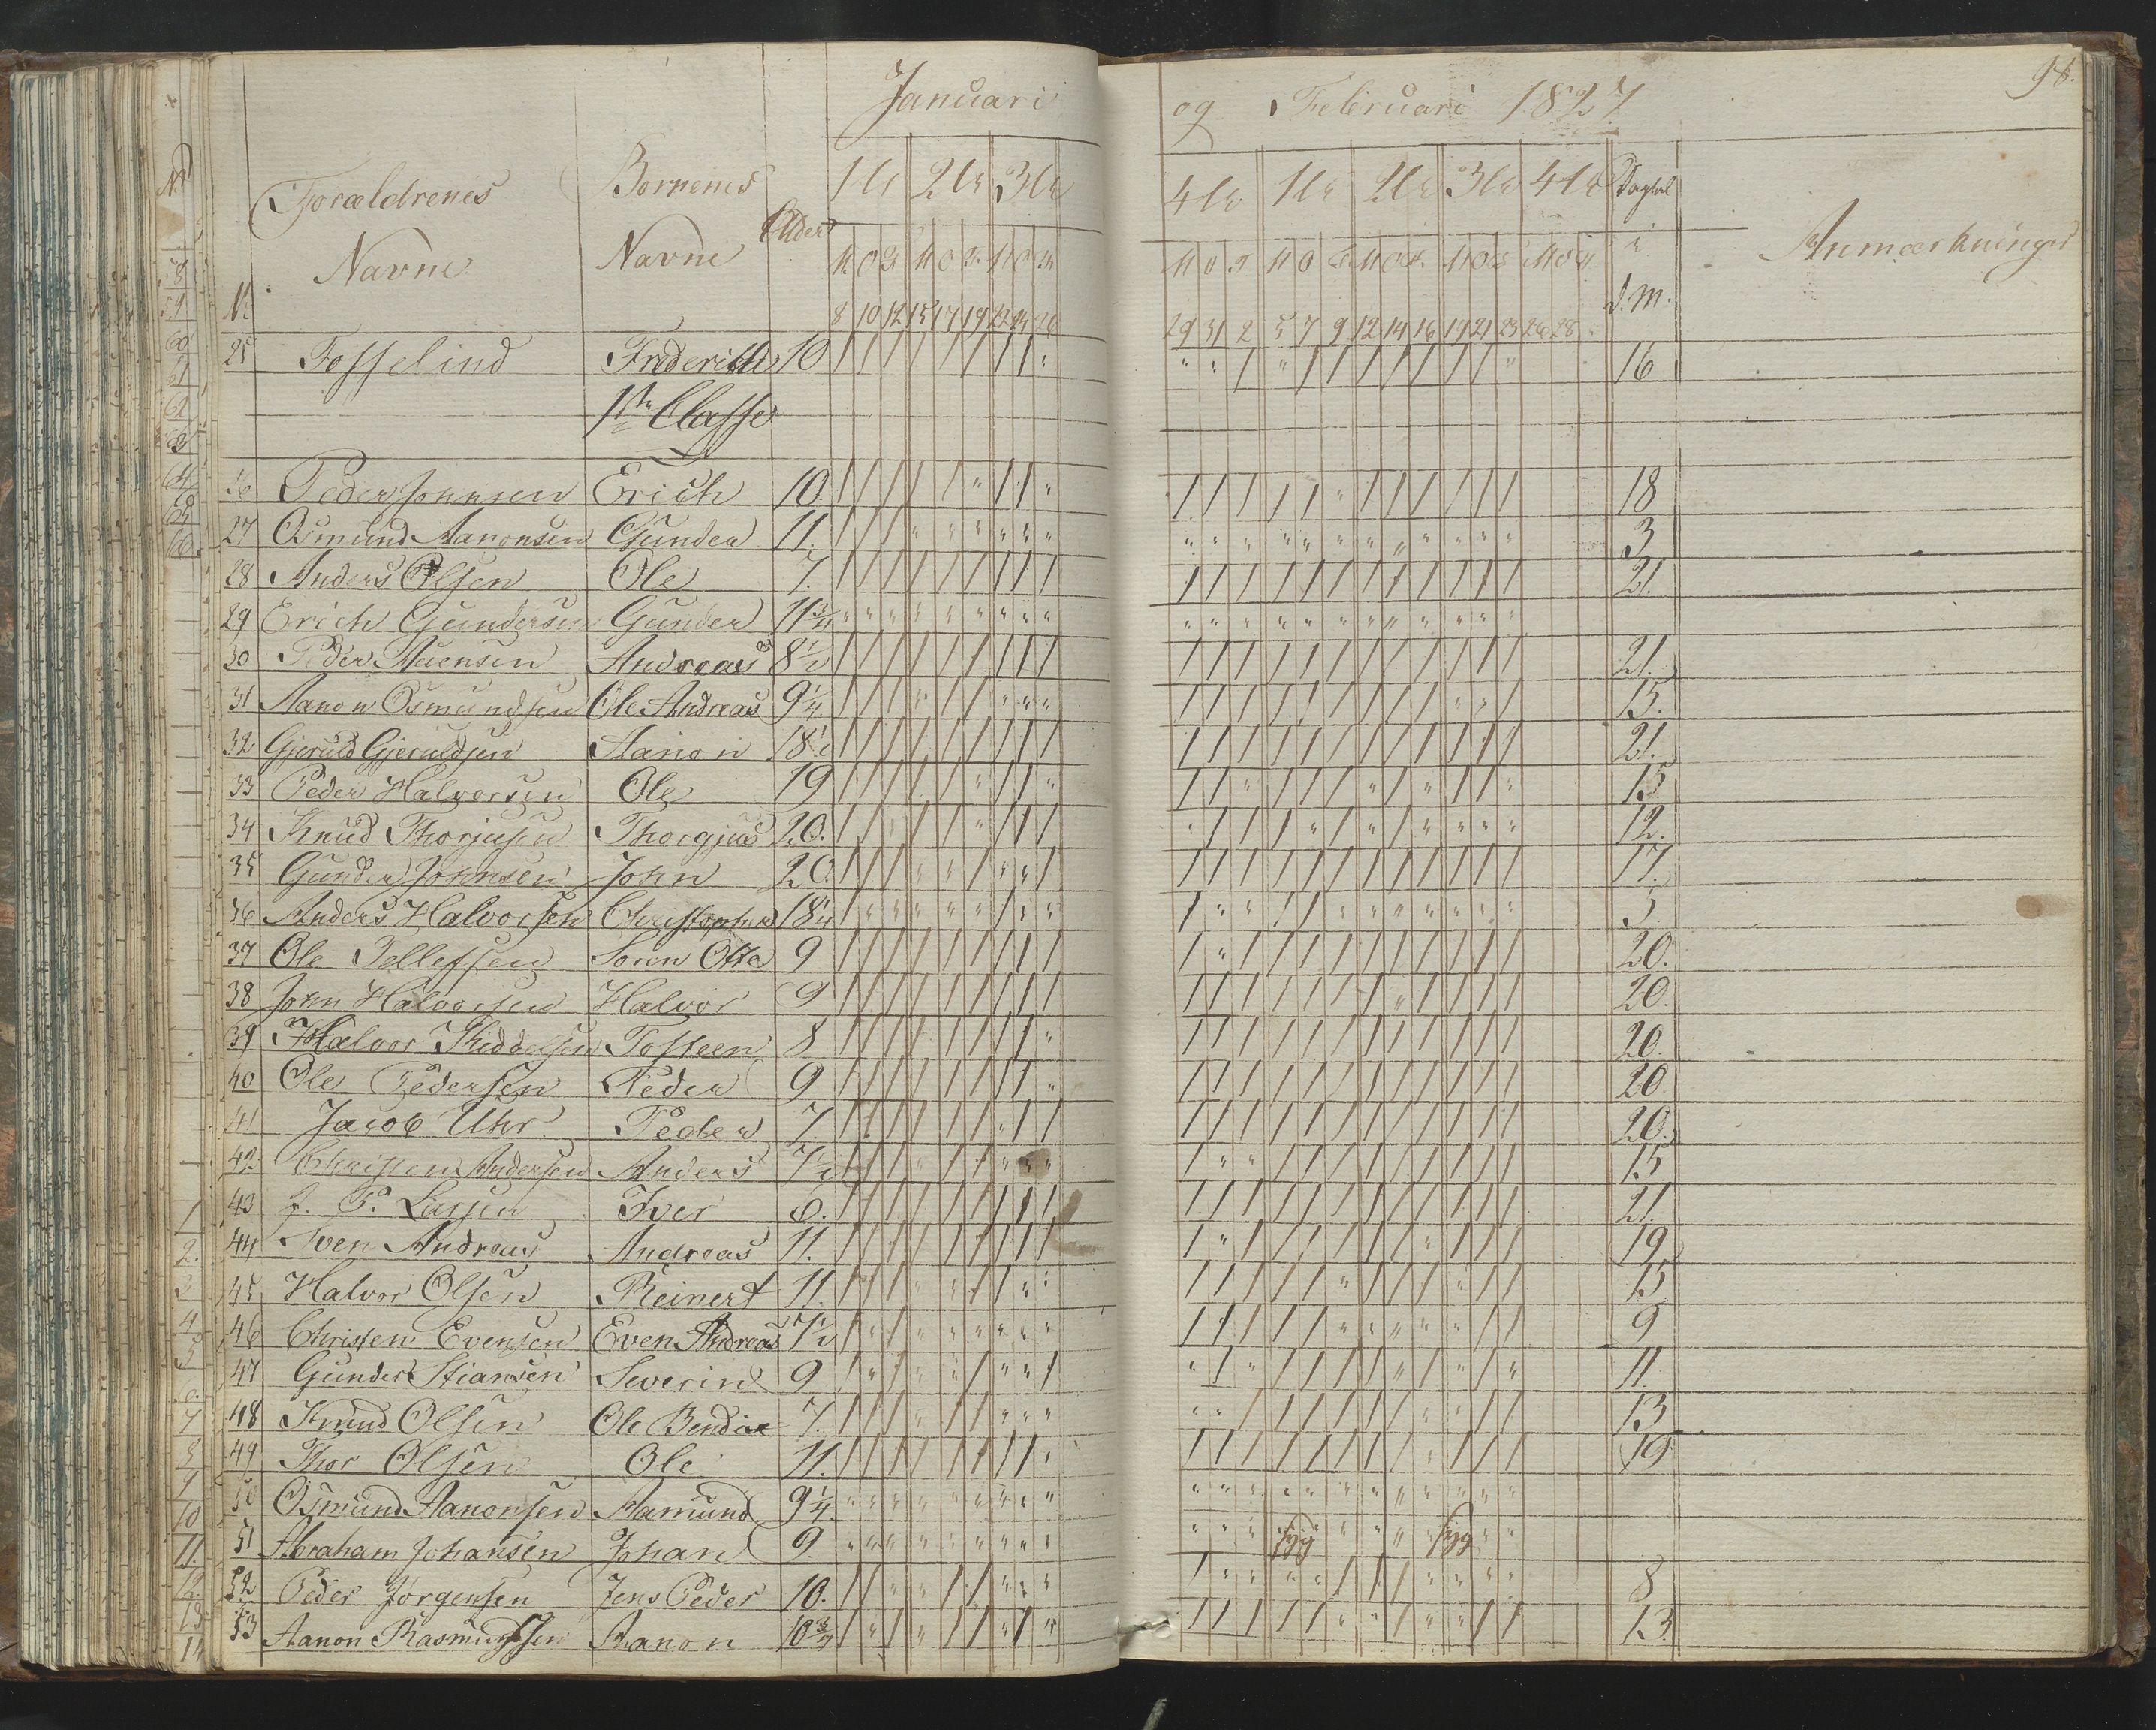 Januari og Februari 1827 98.
Forældrenes Børnenes 1ste 2de 3de 4de 1ste 2de 3de 4de Dagtal
Navne Navne Alder i Anmærkninger
M O M O M O M O M O M O M O M O d. M.
Nr. 8 10 12 15 17 19 22 24 26 29 31 2 5 7 9 12 14 16 19 21 23 26 28
25 Tosselind Friderich 10 16
1ste Classe
26 Peder Jonnsen Erich 10. 18
27 Osmund Aanonsen Gunder 11. 3
28 Anders Olsen Ole 7. 21.
29 Erich Gundersen Gunder 11 3/4
30 Peder Auensen Andreas 8 1/2 21.
31 Aanon Osmundsen Ole Andreas 9 1/4 15.
32 Gjeruld Gjeruldsen Aanon 18 1/2 21.
33 Peder Halvorsen Ole 19 15
34 Knud Thorjusen Thorgjus 20. 12.
35 Gunder Jonnsen John 20. 17.
36 Anders Halvorsen Christopher 18 1/4 5
37 Ole Tellefsen Sorin Otte 9 20.
38 John Halvorsen Halvor 9 20.
39 Halvor Kiddelsen Tosteen 8 20.
40 Ole Pedersen Peder 9 20
41 Jacob Uhr Peder 7 20.
42 Christen Andersen Anders 7 1/2 15
43 J. P. Lassen Iver 8. 21.
44 Sven Andreas Andreas 11. 19
45 Halvor Olsen Reinert 11 15
46 Christen Evensen Even Andreas 7 1/2 9
47 Gunder Stiansen Severin 9 11
48 Knud Olsen Ole Bendix 7. 13
49 Thor Olsen Ole 11. 19
50 Osmund Aanonsen Aamund 9 1/4
51 Abraham Johansen Johan 9. syg syg
52 Peder Jørgensen Jens Peder 10. 8
53 Aanon Rasmundsen Aanon 10 3/4 13